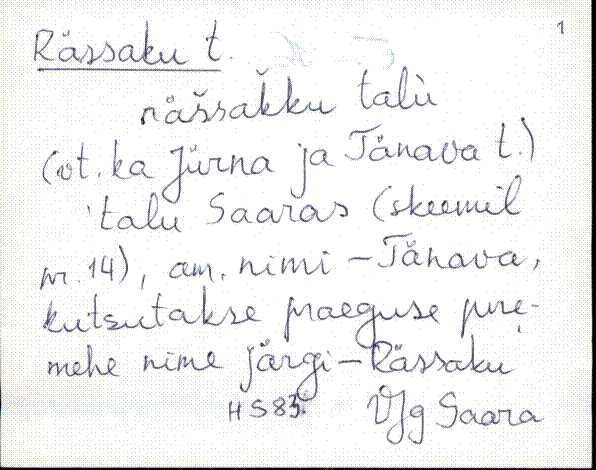 1
Rässaku t.
räššakku talù
(vt. ka Jürna ja Tänava t.)
talu Saaras (skeemil
nr. 14), am. nimi – Tänava,
kutsutakse praeguse pere-
mehe nime järgi – Rässaku
HS83. VJg Saara